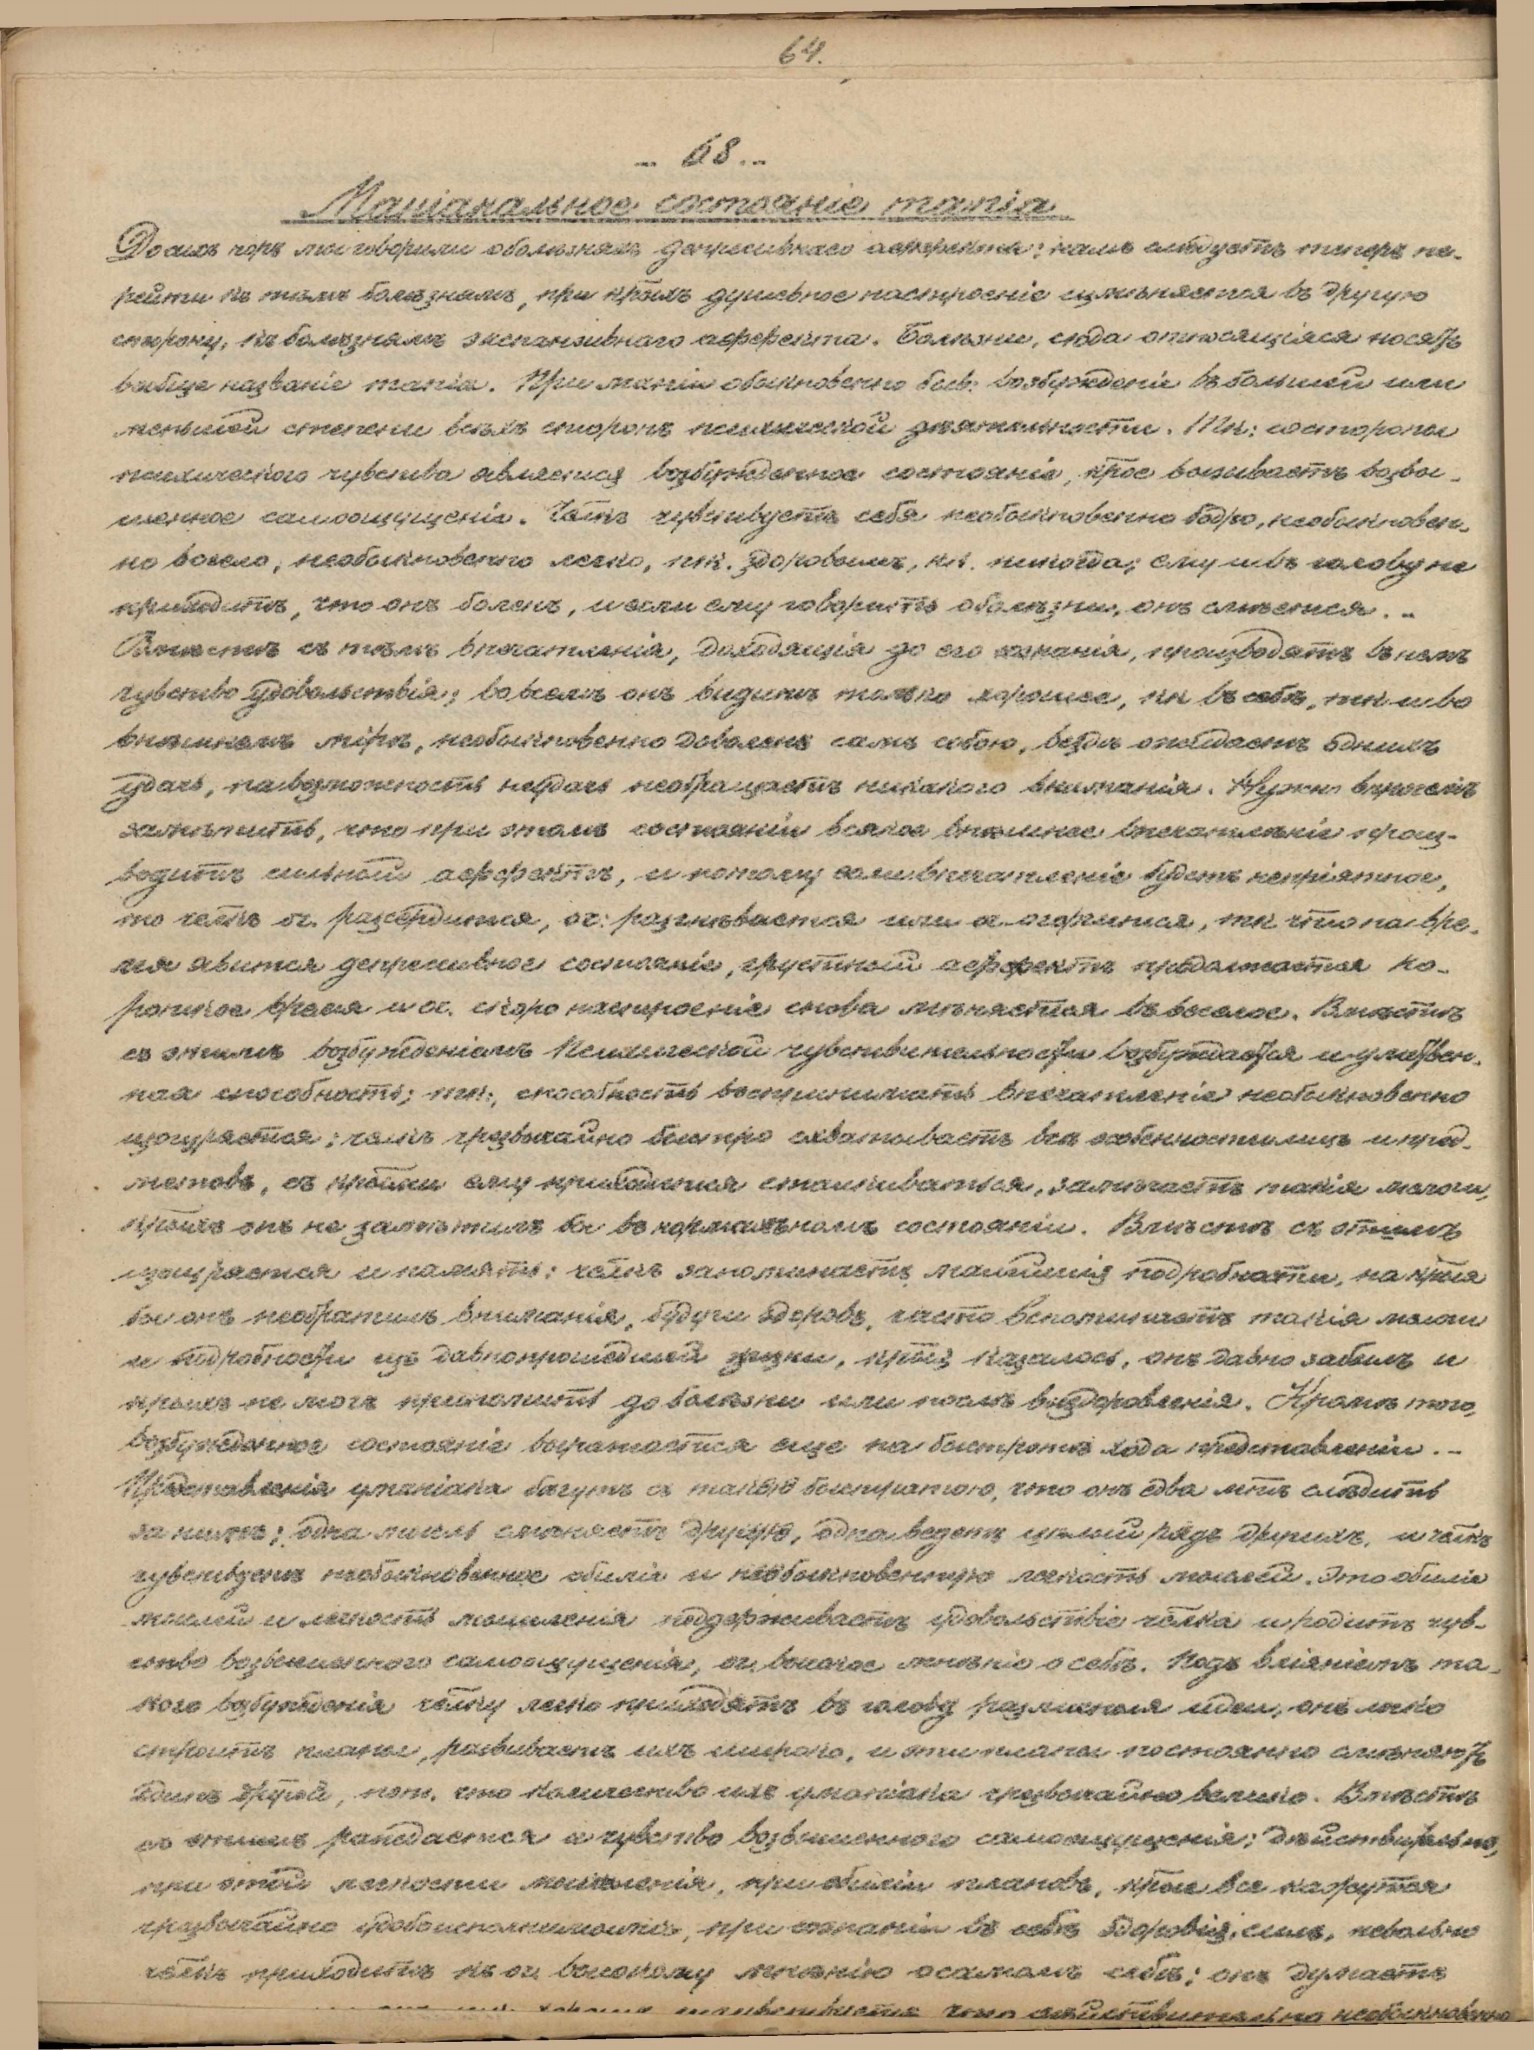 64.
- 68 -
Маніакальное состояніе mania
До сихъ поръ мы говорили о болѣзняхъ депресивнаго аффекта; намъ слѣдуетъ теперь пе-
рейти къ тѣмъ болѣзнямъ, при крыхъ душевное настроеніе измѣняется въ другую
сторону, къ болѣзнямъ экспансивнаго аффекта. Болѣзни, сюда относящіяся носятъ
вообще названіе mania. При маніи обыкновенно быв: возбужденіе въ большей или
меньшей степени всѣхъ сторонъ психической дѣятельности. Тк: со стороны
психическаго чувства является возбужденное состояніе, крое вызываетъ возвы-
шенное самоощущеніе. Чекъ чувствуетъ себя необыкновенно бодро, необыкновен-
но весело, необыкновенно легко, тк. здоровымъ, кк. никогда; ему и въ голову не
приходитъ, что онъ боленъ, и если ему говорятъ о болѣзни, онъ смѣется. -
Вмѣстѣ съ тѣмъ впечатленія, доходящія до его сознанія, производятъ въ немъ
чувство удовольствія; во всемъ онъ видитъ только хорошее, кк въ себѣ, тк и во
внѣшнемъ мірѣ, необыкновенно доволенъ самъ собою, вездѣ ожидаетъ однихъ
удачъ, на возможность неудачъ необращаетъ никакого вниманія. Нужно впрочемъ
замѣтить, что при этомъ состояніи всякое внѣшнее впечатлѣніе произ-
водитъ сильный аффектъ, и потому если впечатленіе будетъ непріятное,
то чекъ оч. разсердится, оч: разгнѣвается или оч. огорчится, тк что на вре-
мя явится депрессивное состояніе, грустный аффектъ продолжается ко-
роткое время и оч. скоро настроеніе снова мѣняется въ веселое. Вмѣстѣ
съ этимъ возбужденіемъ психической чувствительности возбуждается и умствен-
ная способность; тк:, способность воспринимать впечатленіе необыкновенно
изощряется; чекъ чрезвычайно быстро схватываетъ всѣ особенности лицъ и пред-
метовъ, съ крыми ему приходится сталкиваться, замѣчаетъ такія мелочи,
крыхъ онъ не замѣтилъ бы въ нормальномъ состояніи. Вмѣстѣ съ этимъ
изощряется и память: чекъ запоминаетъ малѣйшія подробности, на крыя
бы онъ необратилъ вниманія, будучи здоровъ, часто вспоминаетъ такія мелочи
и подробности изъ давнопрошедшей жизни, крыя казалось, онъ давно забылъ и
крыхъ не могъ припомнить до болѣзни или послѣ выздоровленія. Кромѣ того,
возбужденное состояніе выражается еще на быстротѣ хода представленій. -
Представленія у маніака бѣгутъ съ такою быстротою, что онъ едва мтъ слѣдить
за ними; одна мысль смѣняетъ другую, одна ведетъ цѣлый рядъ другихъ, и чекъ
чувствуетъ необыкновенное обиліе и необыкновенную легкость мыслей. Это обиліе
мыслей и легкость мышленія поддерживаетъ удовольствіе чека и родитъ чув-
ство возвышеннаго самоощущенія, оч. высокое мнѣніе о себѣ. Подъ вліяніемъ та-
кого возбужденія чеку легко приходятъ въ голову различныя идеи, онъ легко
строитъ планы, развиваетъ ихъ широко, и эти планы постоянно смѣняютъ
одинъ другой, пот. что количество ихъ у маніака чрезвычайно велико. Вмѣстѣ
съ этимъ раждается и чувство возвышеннаго самоощущенія; дѣйствительно,
при этой легкости мышленія, при обиліи плановъ, крые все кажутся
чрезвычайно удобоисполнимыми, при сознаніи въ себѣ здоровія, силъ, невольно
чекъ приходитъ къ оч. высокому мнѣнію о самомъ себѣ; онъ думаетъ
что дѣйствительно необыкновенно